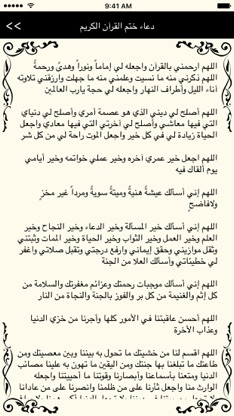 9:41 AM
<< دعاء ختم القرآن الكريم
اللهم ارحمني بالقرآن واجعله لي إماماً ونوراً وهدىً ورحمةً
اللهم ذكرني منه ما نسيت وعلمني منه ما جهلت وارزقني تلاوته
آناء الليل وأطراف النهار واجعله لي حجة يارب العالمين
اللهم أصلح لي ديني الذي هو عصمة أمري وأصلح لي دنياي
التي فيها معاشي وأصلح لي آخرتي التي فيها معادي واجعل
الحياة زيادة لي في كل خير واجعل الموت راحة لي من كل شر
اللهم اجعل خير عمري آخره وخير عملي خواتمه وخير أيامي
يوم ألقاك فيه
اللهم إني أسألك عيشة هنية وميتة سوية ومرداً غير مخزٍ
ولافاضح
اللهم إني أسألك خير المسألة وخير الدعاء وخير النجاح وخير
العلم وخير العمل وخير الثواب وخير الحياة وخير الممات وثبتني
وثقل موازيني وحقق إيماني وارفع درجتي وتقبل صلاتي واغفر
لي خطيئاتي وأسألك العلا من الجنة
اللهم إني أسألك موجبات رحمتك وعزائم مغفرتك والسلامة من
كل إثم والغنيمة من كل بر والفوز بالجنة والنجاة من النار
اللهم أحسن عاقبتنا في الأمور كلها وأجرنا من خزي الدنيا
وعذاب الآخرة
اللهم اقسم لنا من خشيتك ما تحول به بيننا وبين معصيتك ومن
طاعتك ما تبلغنا بها جنتك ومن اليقين ما تهون به علينا مصائب
الدنيا ومتعنا بأسماعنا وأبصارنا وقوتنا ما أحييتنا واجعله
الوارث منا واجعل ثأرنا على من ظلمنا وانصرنا على من عادانا